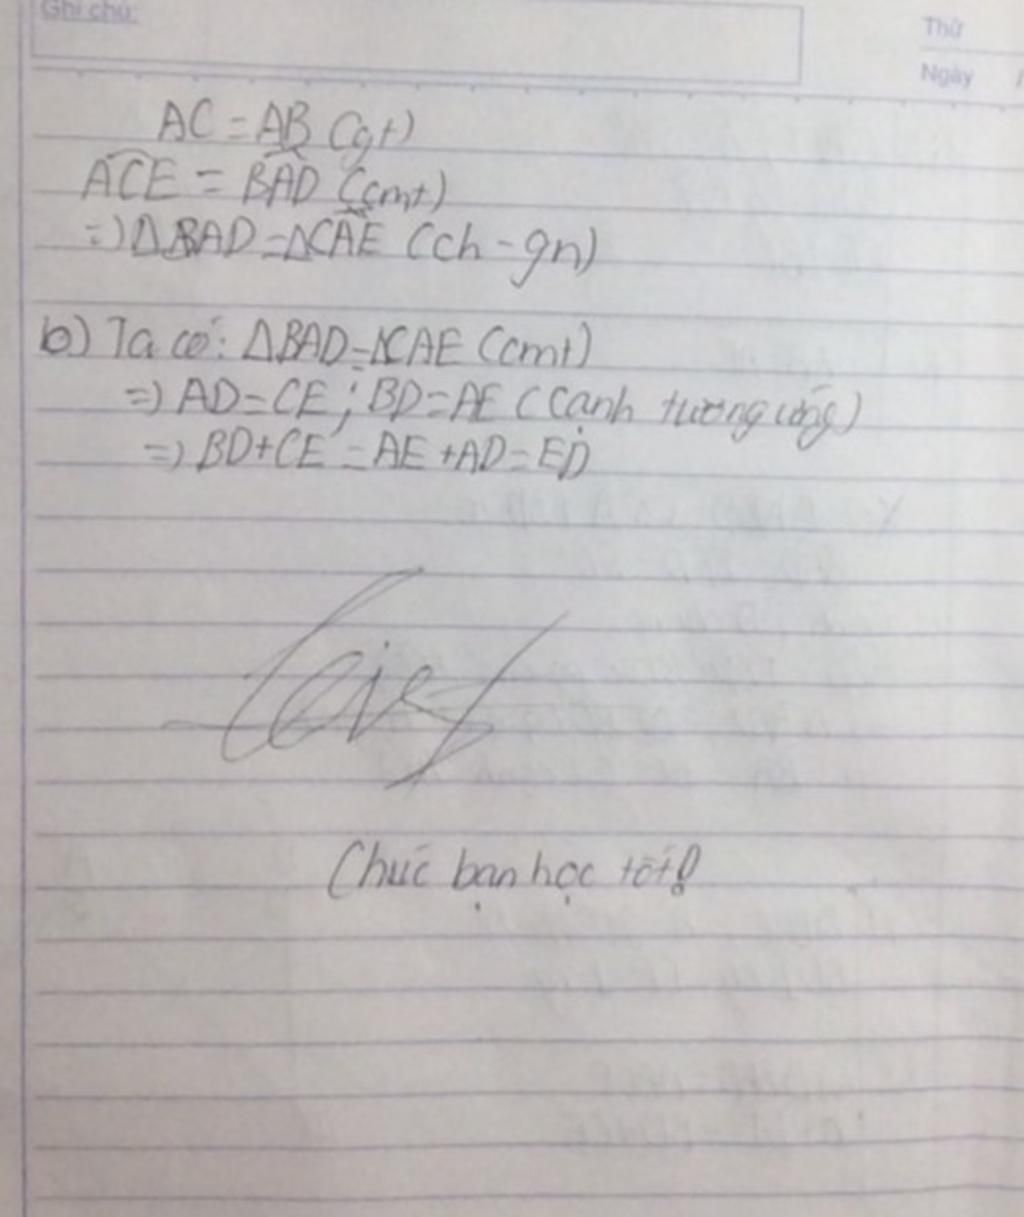 Ghi chú:
Thứ
Ngày /
AC = AB (gt)
ACE = BAD (cmt)
=> ΔBAD = ΔCAE (ch - gn)
b) Ta có: ΔBAD = ΔCAE (cmt)
=> AD = CE ; BD = AE (cạnh tương ứng)
=> BD + CE = AE + AD = ED
Chúc bạn học tốt!